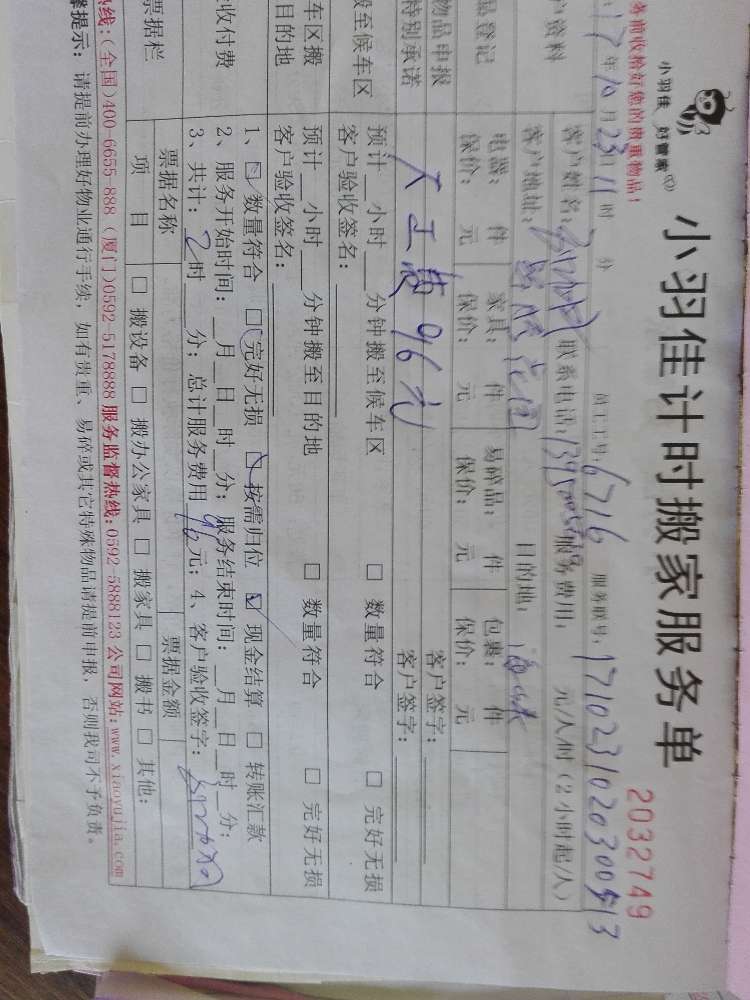 小羽佳 好管家
小羽佳计时搬家服务单
2032749
务前收拾好您的贵重物品！
员工工号：6716 服务联号：
17年10月23日11时 分
户资料
客户姓名： 联系电话： 服务费用： 元/人/时（2小时起/人）
客户地址： 目的地：
品登记
电器： 件 家具： 件 易碎品： 件 包裹： 件
保价： 元 保价： 元 保价： 元 保价： 元
物品申报 客户签字：
特别承诺 96元 客户签字：
搬至候车区
预计__小时__分钟搬至候车区 □ 数量符合 □ 完好无损
客户验收签名：
车区搬
目的地
预计__小时__分钟搬至目的地 □ 数量符合 □ 完好无损
客户验收签名：
收付费
1、☑数量符合 □完好无损 ☑按需归位 ☑ 现金结算 □ 转账汇款
2、服务开始时间：__月__日__时__分；服务结束时间：__月__日__时__分；
3、共计：2时__分；总计服务费用96元；4、客户验收签字：
票据栏
票据名称 票据金额
项 目 □ 搬设备 □ 搬办公家具 □ 搬家具 □ 搬书 □ 其他：
热线：(全国)400-6655 888（厦门)0592-5178888 服务监督热线：0592-5888123 公司网站：www.xiaoyujia.com
馨提示：请提前办理好物业通行手续，如有贵重、易碎或其它特殊物品请提前申报，否则我司不予负责。